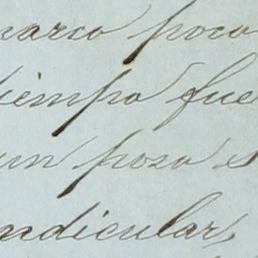 marco poco
tiempo fue
un poso s
ndicular,